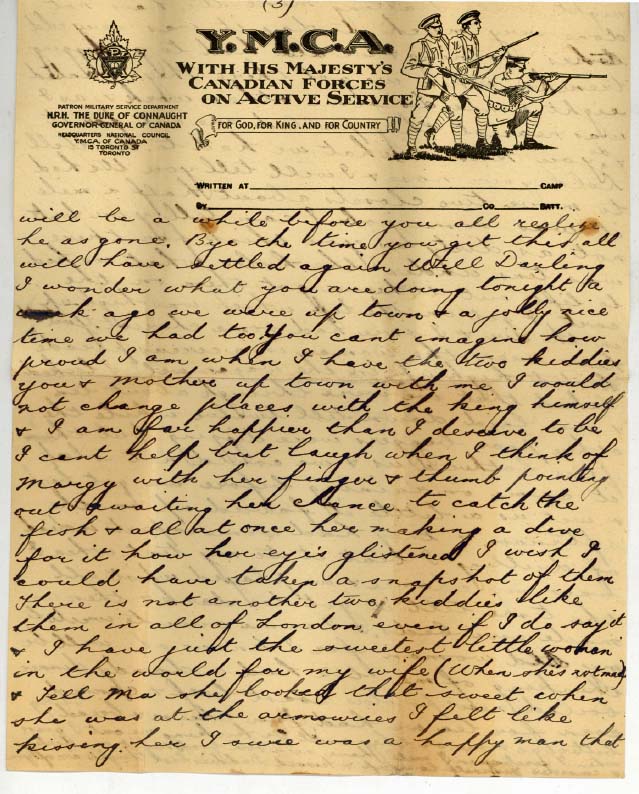 (3)
Y.M.C.A.
WITH HIS MAJESTY'S
CANADIAN FORCES
ON ACTIVE SERVICE
PATRON MILITARY SERVICE DEPARTMENT
H.R.H. THE DUKE OF CONNAUGHT
GOVERNOR GENERAL OF CANADA
HEADQUARTERS NATIONAL COUNCIL
Y.M.C.A. OF CANADA
15 TORONTO ST
TORONTO
FOR GOD, FOR KING, AND FOR COUNTRY
WRITTEN AT CAMP
BY CO. BATT.
will be a while before you all realize
he as gone. Bye the time you get this all
will have settled again Well Darling
I wonder what you are doing tonight a
week ago we were up town & a jolly nice
time we had too. You cant imagine how
proud I am when I have the two kiddies
you & Mother up town with me I would
not change places with the king himself
& I am far happier than I deserve to be
I cant help but laugh when I think of
Margy with her finger & thumb pointing
out awaiting her chance to catch the
fish & all at once her making a dive
for it how her eye's glistened I wish I
could have taken a snapshot of them
There is not another two kiddies like
them in all of London even if I do say it
& I have just the sweetest little woman
in the world for my wife (When she's not mad)
& Tell Ma she looked that sweet when
she was at the armouries I felt like
kissing her I sure was a happy man that